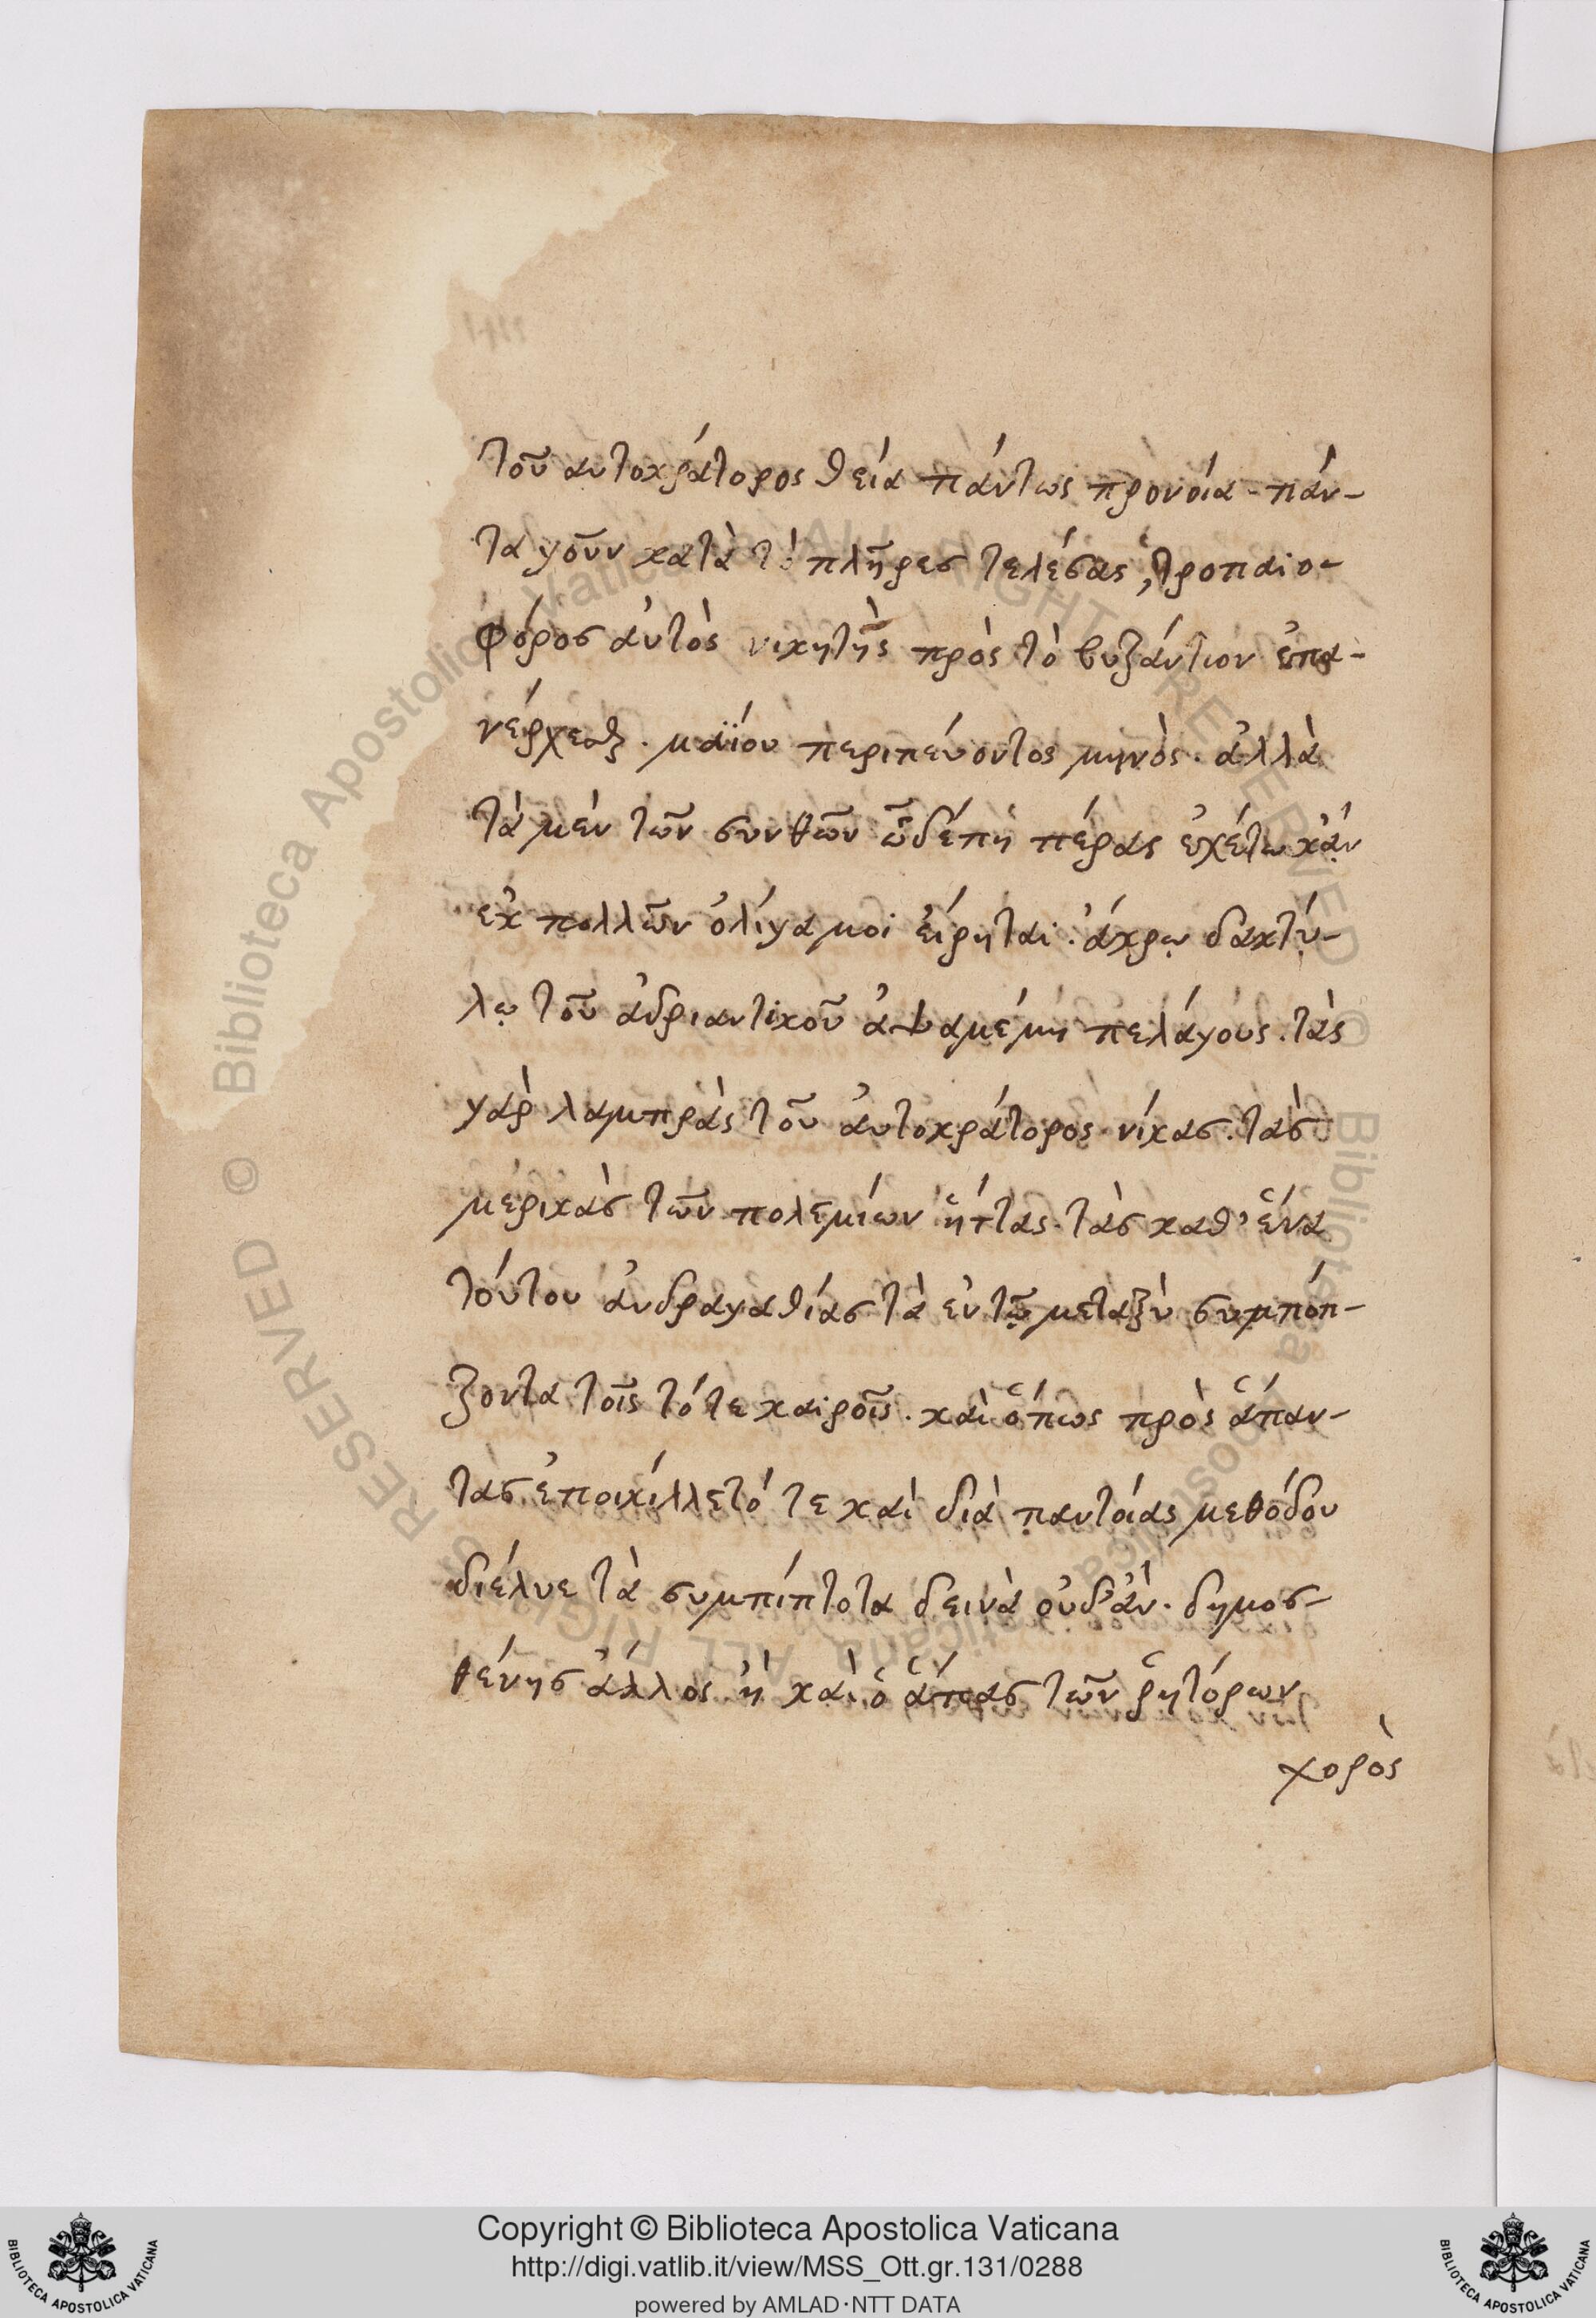 τοῦ αυτοκράτορος θεία πάντως προνοία· πάν-
τα γοῦν κατὰ τὸ πλῆρεσ τελέσας, τροπαιο-
φόροσ ἀυτὸς νικητὴς πρὸς τὸ βυζάντιον ἐπα-
νέρχεται. μαΐου περιπεύοντος μηνὸς. ἀλλὰ
τὰ μεν τῶν συνθῶν ὧδέπη πέρας ἐχέτω κἀν
εκ πολλῶν ὀλίγα μοι ἐίρηται. ἄκρω δακτύ-
λω τοῦ ἀδριαντικοῦ ἀψαμέμη πελάγους. τὰς
γὰρ λαμπρὰς τοῦ ἀυτοκράτορος νίκασ. τὰσ
μερικὰσ τῶν πολεμίων ἥττας. τὰσ καθ' ἕνα
τόυτου ἀνδραγαθίασ τὰ ἐν τῶ μεταξὺ συμπόπ-
ζοντα τοῖς τότε καιροῖς. καὶ ὅπως πρὸς ἅπαν-
τασ ἐποικίλλετό τε καὶ διὰ παντοίας μεθόδου
διέλυε τὰ συμπίπτοτα δεινὰ ὀυδ' ἀν. δημοσ-
θένησ ἄλλος ἢ καὶ ὁ ἅπασ τῶν ῥητόρων
χορὸς
Copyright © Biblioteca Apostolica Vaticana
http://digi.vatlib.it/view/MSS_Ott.gr.131/0288
powered by AMLAD·NTT DATA
BIBLIOTECA APOSTOLICA VATICANA
BIBLIOTECA APOSTOLICA VATICANA
© Biblioteca Apostolica Vaticana ALL RIGHT RESERVED
© Biblioteca Apostolica Vaticana ALL RIGHT RESERVED